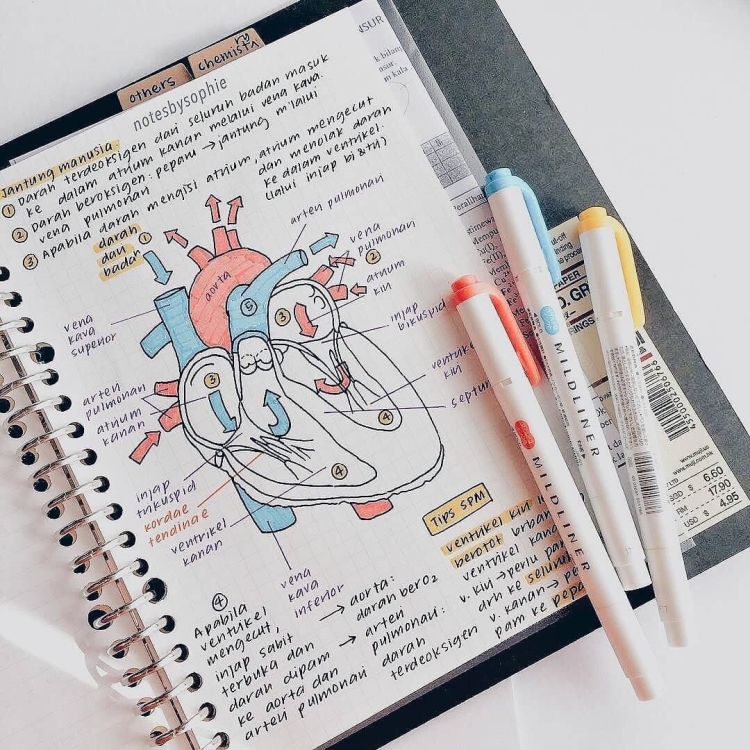 others
chemistry
notesbysophie
jantung manusia.
① Darah terdeoksigen dari seluruh badan masuk
ke dalam atrium kanan melalui vena kava.
② Darah beroksigen: pepanu → jantung m'lalui
vena pulmonari
③ Apabila darah mengisi atrium, atrium mengecut
dan menolak darah
ke dalam ventrikel.
(lalui injap bi & tri)
darah ①
dari
badan
arteri pulmonari
vena
pulmonari
②
atrium
kiri
aorta
⑤
③
injap
bikuspid
vena
kava
superior
③
ventrikel
kiri
septum
arteri
pulmonari
atrium
kanan
④
④
injap
trikuspid
kordae
tendinae
ventrikel
kanan
vena
kava
inferior
Tips SPM
ventrikel kiri
berotot
ventrikel
v. kiri → perlu
drh ke
v. kanan →
pam ke
④
Apabila
ventrikel
mengecut,
injap sabit
terbuka dan
darah dipam
ke aorta dan
arteri pulmonari
→ aorta:
darah berO2
→ arteri
pulmonari:
darah
terdeoksigen
NSUR
k bilan
asur.
MILDLINER
MILDLINER
MILDLINER
PAPER
4550002506766
www.muji.us
www.muji.com.hk
SGD $ 6.60
RM 17.90
USD $ 4.95